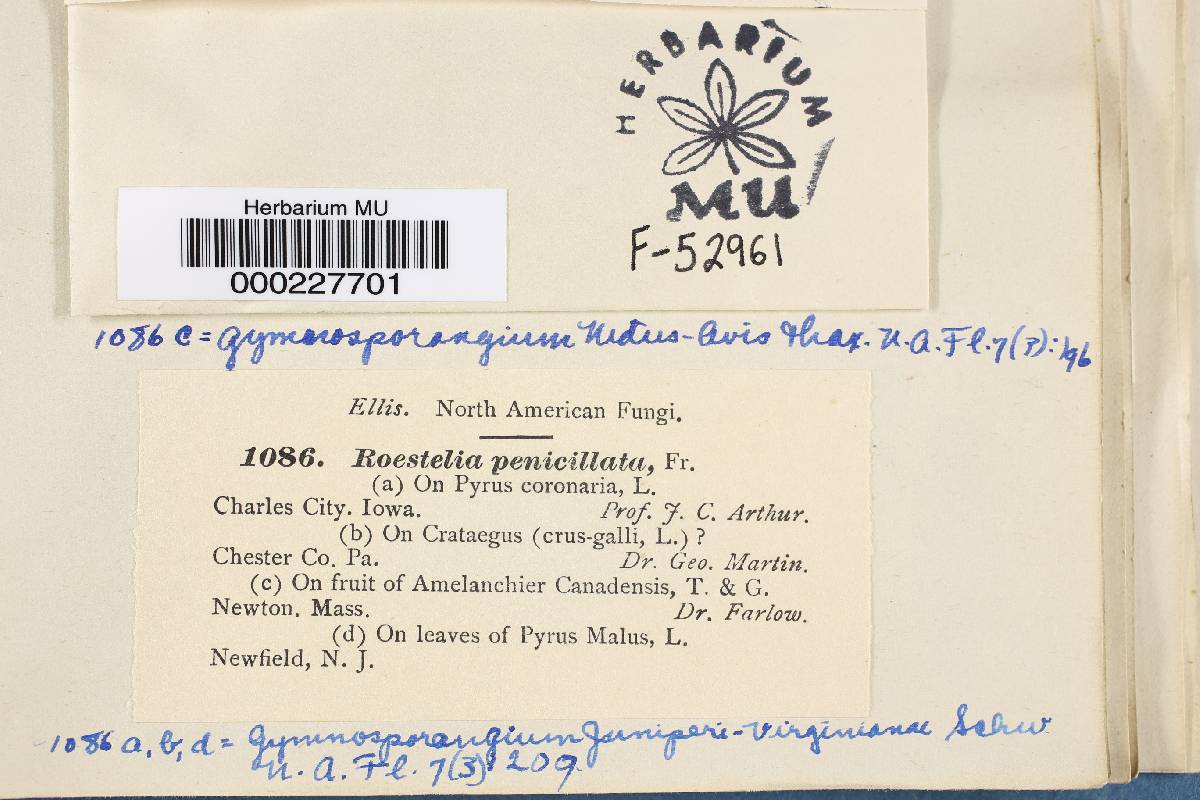 HERBARIUM
MU
F-52961
Herbarium MU
000227701
1086 c = Gymnosporangium Nidus-Avis Thax. N.A.Fl.7(3):196
Ellis. North American Fungi.
1086. Roestelia penicillata, Fr.
(a) On Pyrus coronaria, L.
Charles City. Iowa. Prof. J. C. Arthur.
(b) On Crataegus (crus-galli, L.) ?
Chester Co. Pa. Dr. Geo. Martin.
(c) On fruit of Amelanchier Canadensis, T. & G.
Newton. Mass. Dr. Farlow.
(d) On leaves of Pyrus Malus, L.
Newfield, N. J.
1086 a, b, d = Gymnosporangium Juniperi-Virginianae Schw
N. A. Fl. 7(3) 209